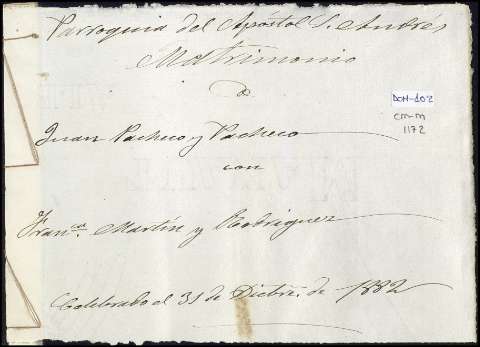 Parroquia del Apóstol S. Andrés
Matrimonio
de
DOH-102
cm-m
1172
Juan Pacheco y Pacheco
con
Franca. Martín y Rodriguez
Celebrado el 31 de Dicbre. de 1882